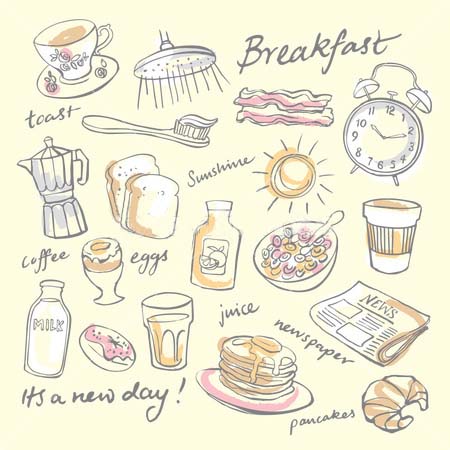 Breakfast
toast
Sunshine
coffee
eggs
MILK
juice
NEWS
newspaper
It's a new day!
pancakes